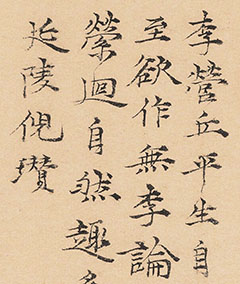 李營丘平生自
至欲作無李論
縈迴自然趣
延陵倪瓚